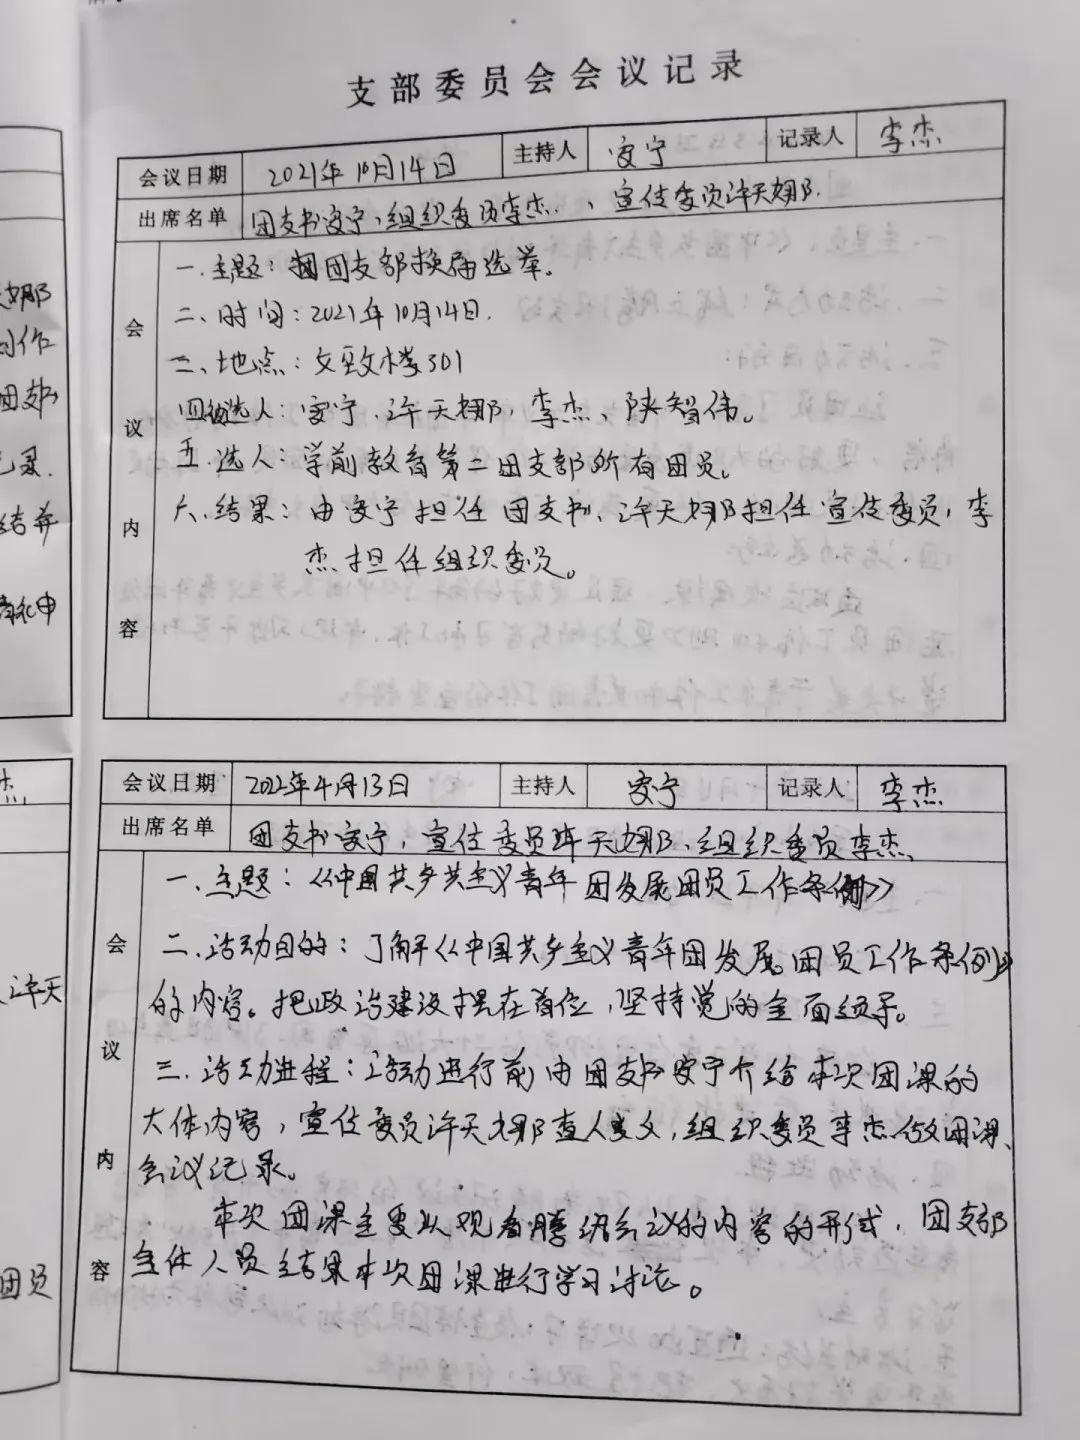 支部委员会会议记录
会议日期 2021年10月14日 主持人 安宁 记录人 李杰
出席名单 团支书安宁、组织委员李杰、宣传委员许天娜.
会议内容
一.主题:团支部换届选举.
二、时间:2021年10月14日.
三、地点:文致楼301
四.候选人:安宁、许天娜、李杰、陕智伟。
五.选人:学前教育第二团支部所有团员。
六.结果:由安宁担任团支书、许天娜担任宣传委员,李
杰担任组织委员。
会议日期 2022年4月13日 主持人 安宁 记录人 李杰
出席名单 团支书安宁,宣传委员许天娜、组织委员李杰、
会议内容
一.主题:《中国共产主义青年团发展团员工作条例》
二.活动目的:了解《中国共产主义青年团发展团员工作条例》
的内容。把政治建设摆在首位,坚持党的全面领导。
三.活动进程:活动进行前由团支书安宁介绍本次团课的
大体内容,宣传委员许天娜查人,组织委员李杰做团课、
会议记录。
本次团课主要以观看腾讯会议的内容的形式,团支部
全体人员结果本次团课进行学习讨论。
天娜
团支书
记录.
结并
李杰
许天
团员